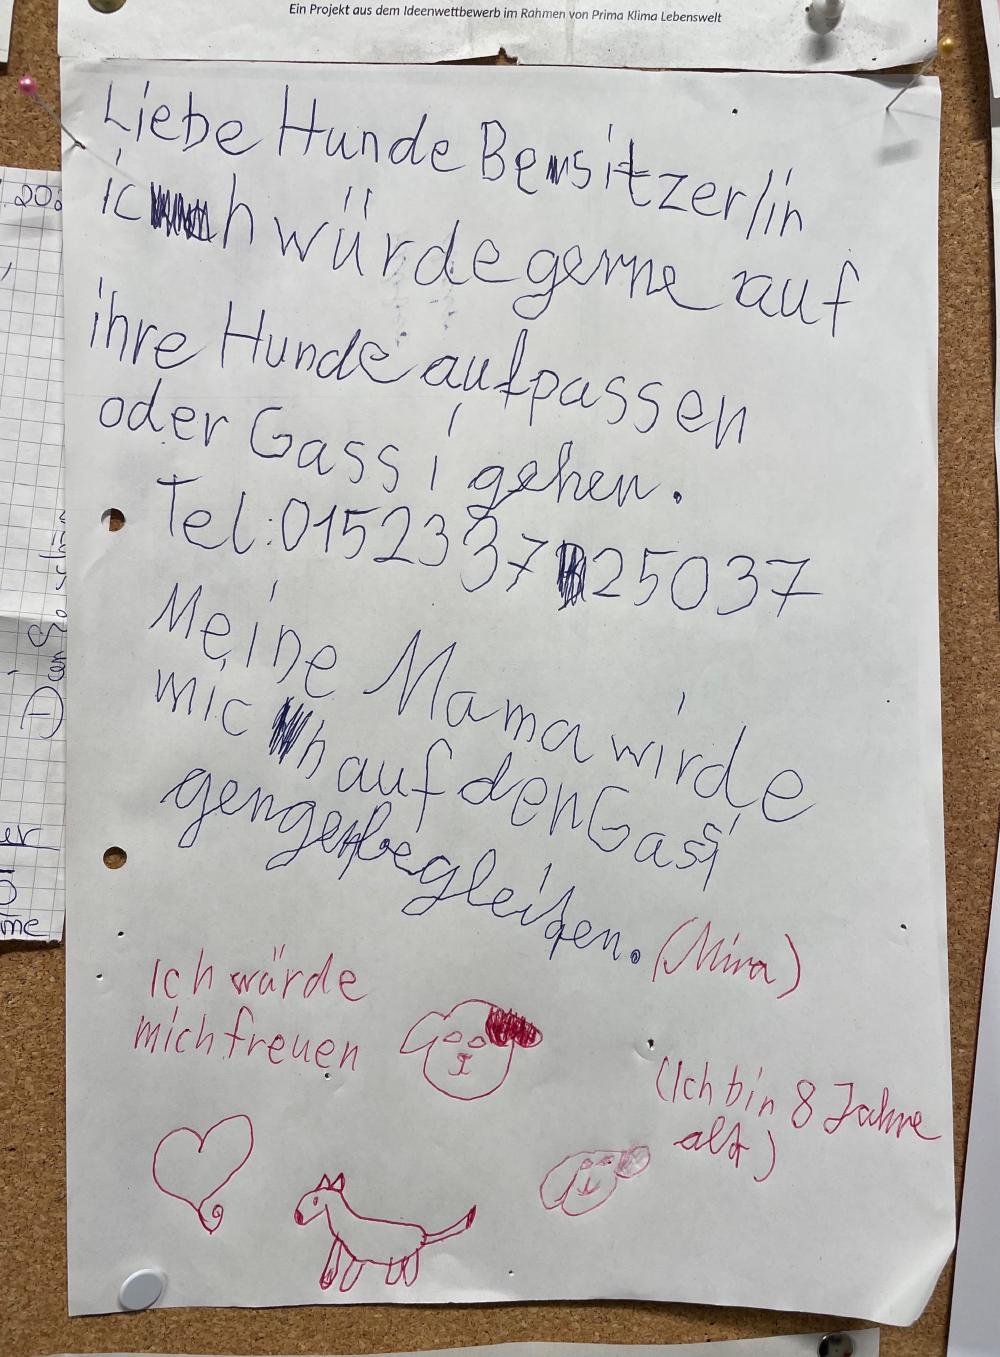 Ein Projekt aus dem Ideenwettbewerb im Rahmen von Prima Klima Lebenswelt
Liebe Hunde Besitzer/in
ich würde gerne auf
ihre Hunde aufpassen
oder Gassi gehen.
Tel:015233725037
Meine Mama wirde
mich auf den Gasi
gengen begleiten.
(Mira)
Ich würde
mich freuen
(Ich bin 8 Jahre
alt)
202